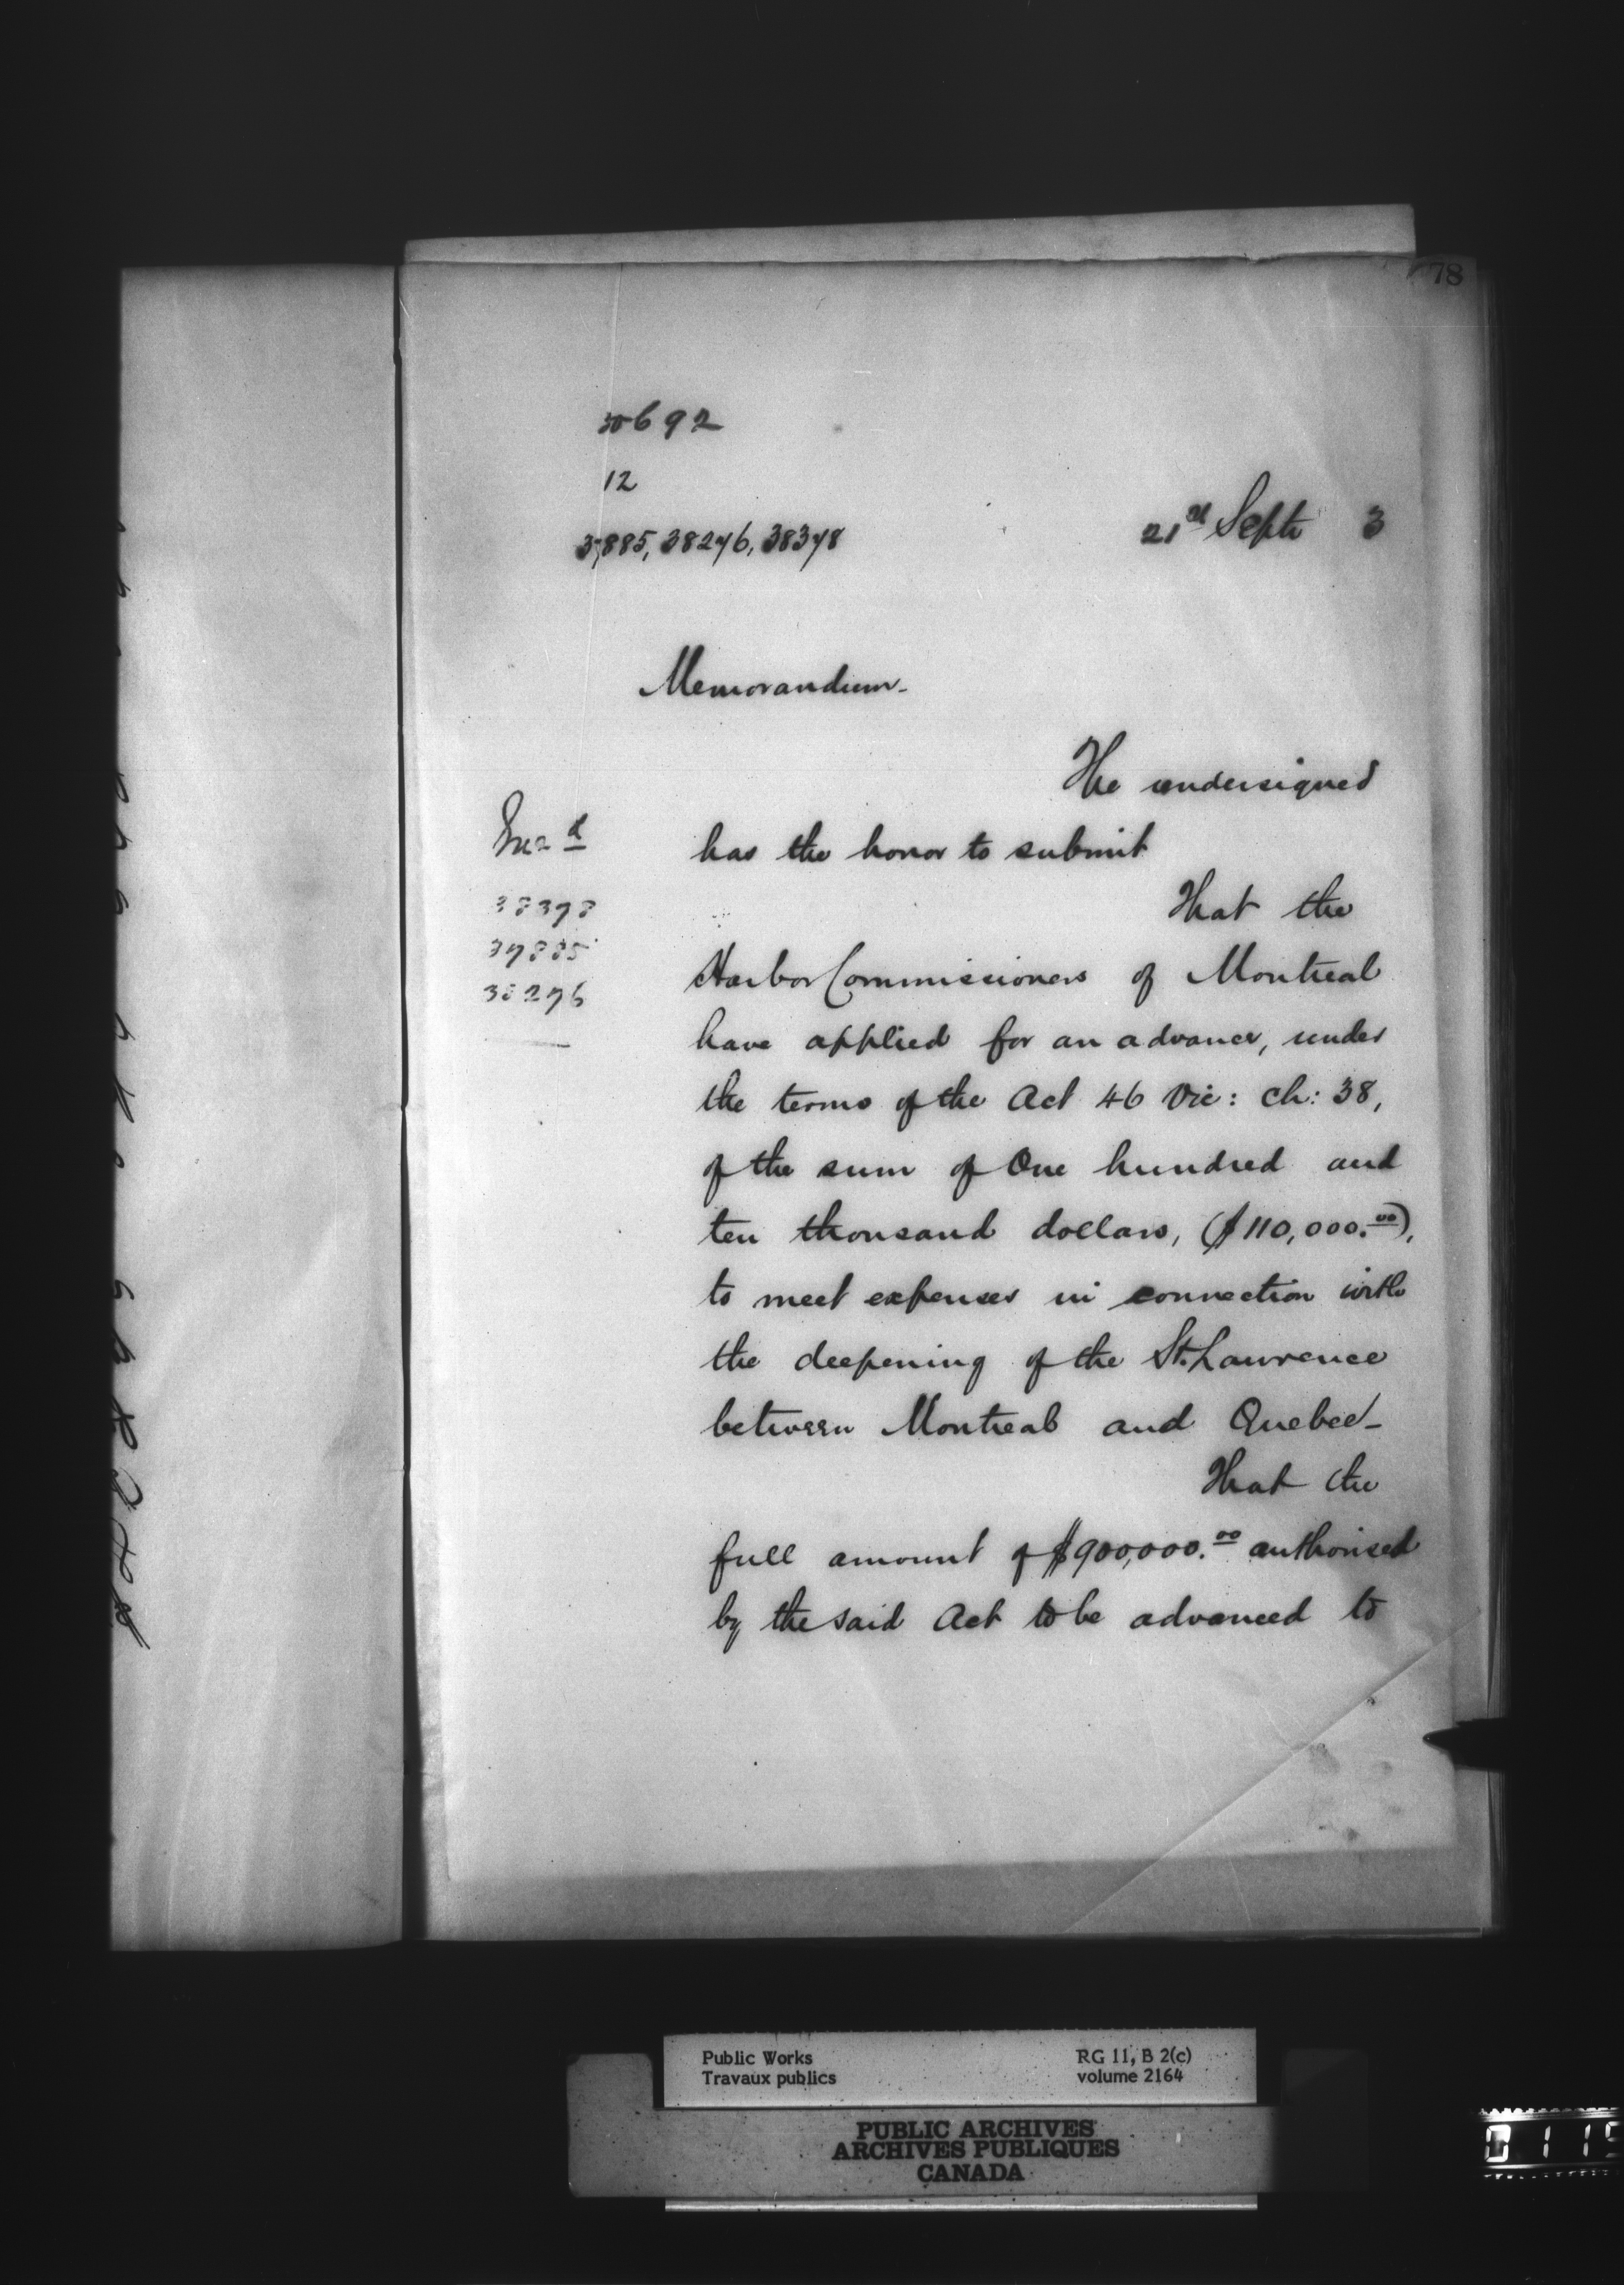 78
30692
12
37885, 38276, 38378
21st Septr 3
Memorandum.
The undersigned
has the honor to submit
38378
37885
38276
That the
Harbor Commissioners of Montreal
have applied for an advance, under
the terms of the Act 46 Vic: ch: 38,
of the sum of One hundred and
ten thousand dollars, ($110,000.00),
to meet expenses in connection with
the deepening of the St. Lawrence
between Montreal and Quebec_
That the
full amount of $900,000.00 authorised
by the said Act to be advanced to
Public Works
Travaux publics
RG 11, B 2(c)
volume 2164
PUBLIC ARCHIVES
ARCHIVES PUBLIQUES
CANADA